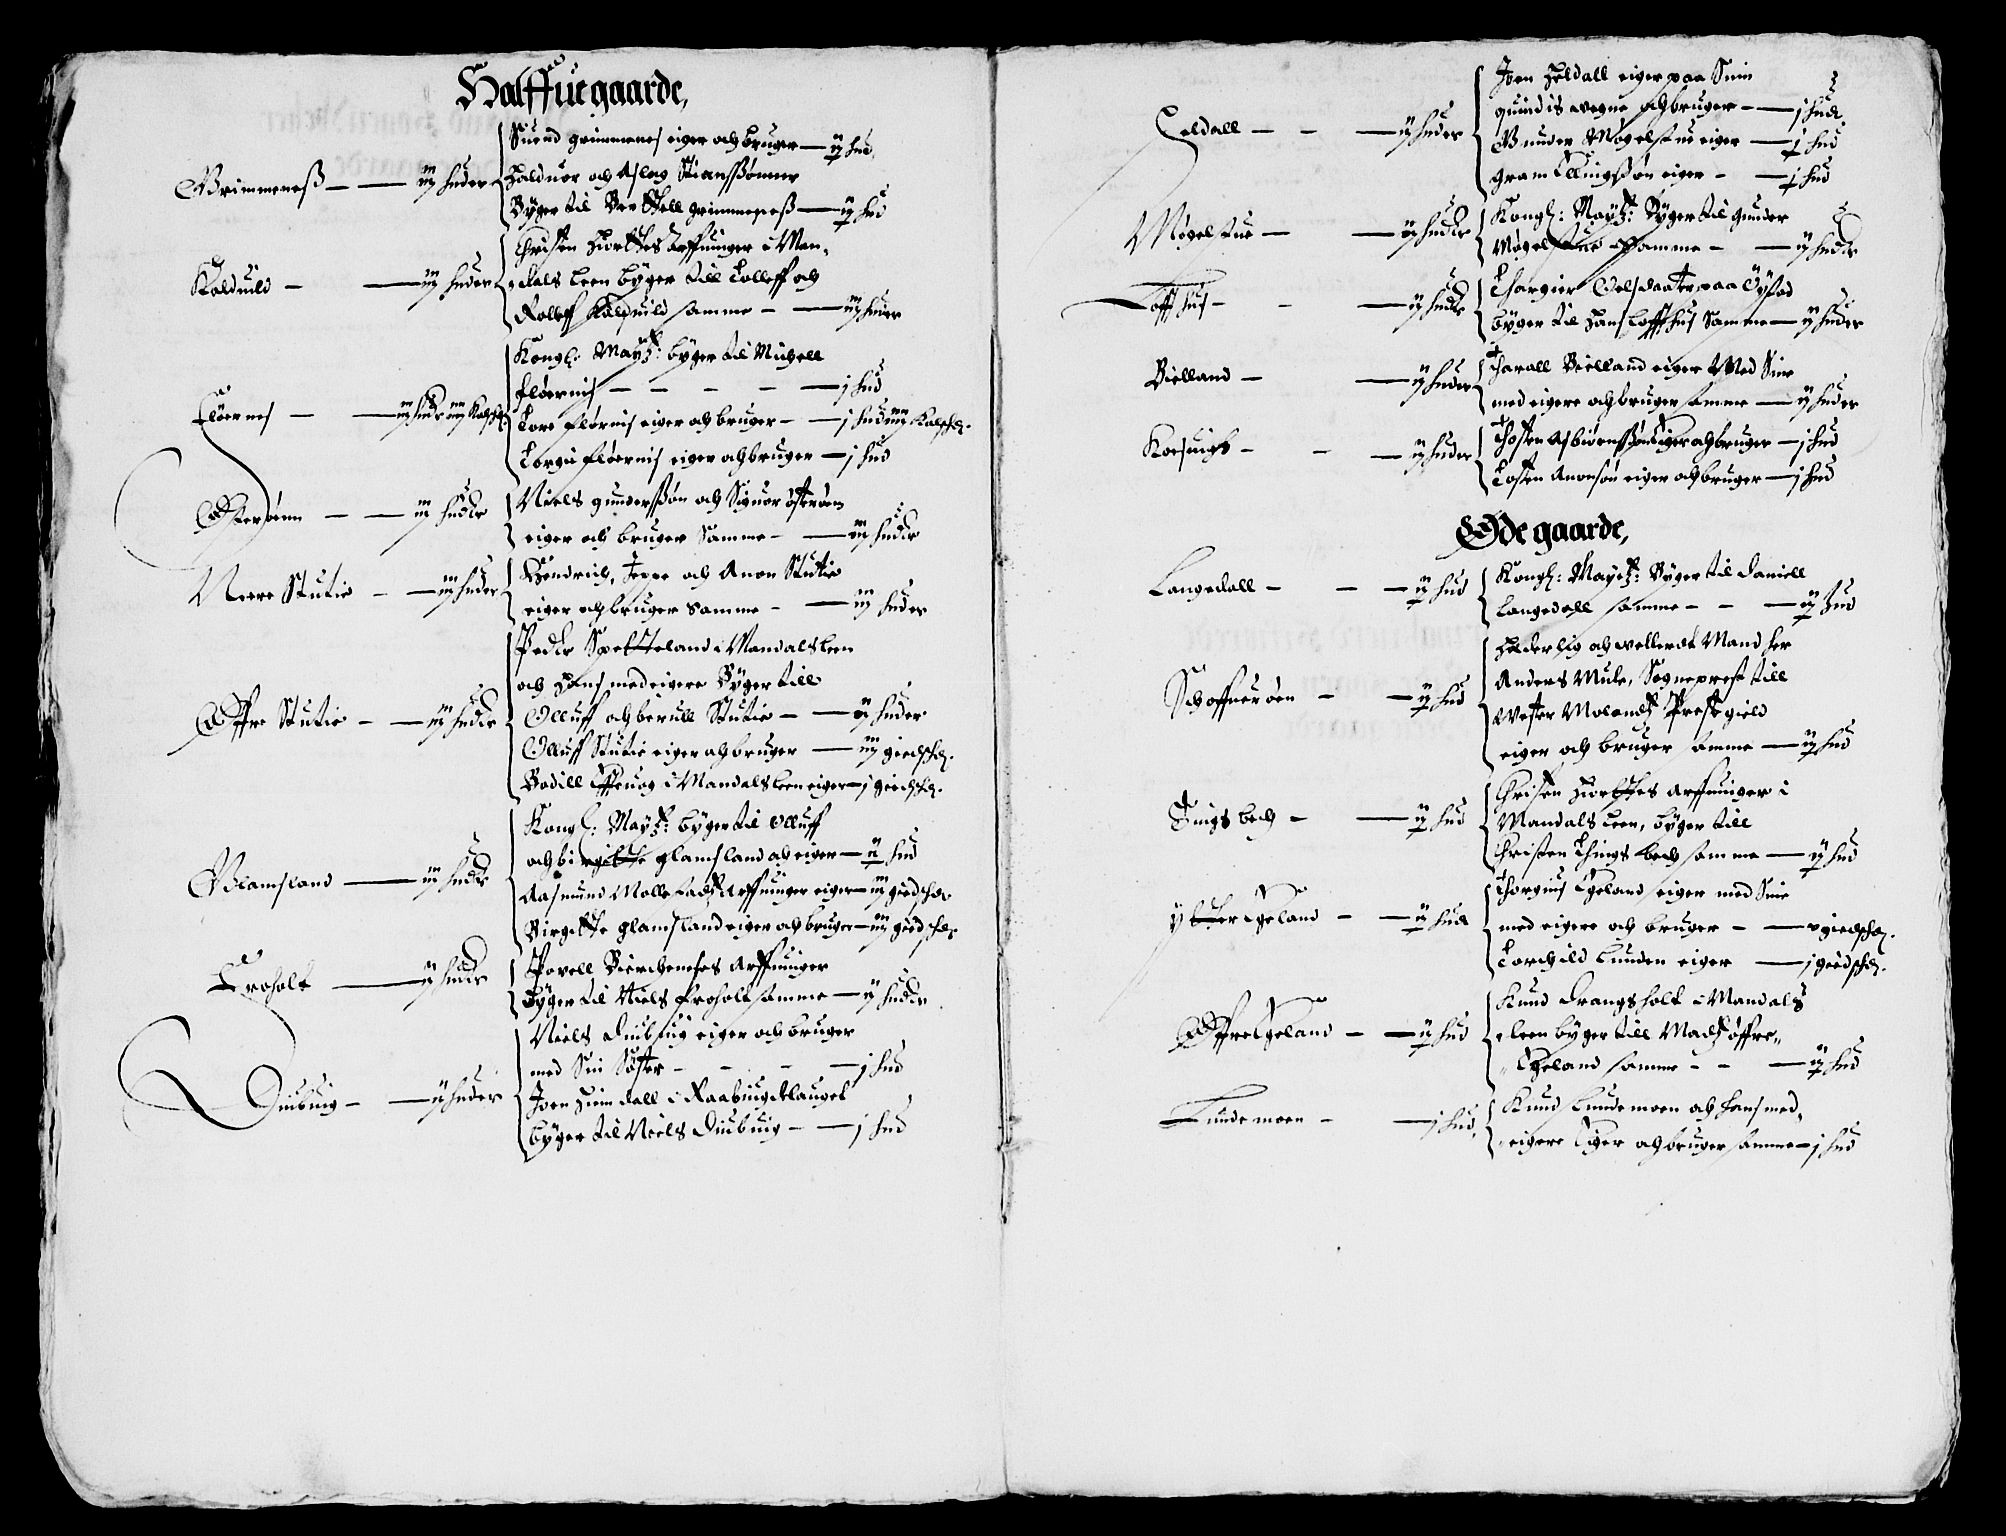 Halffuegaarde,
Grimmeneß — — iij huder
Siuend grimmenes eiger och bruger — ij hud
Halduor och Asløg Stianssønner
Byger til Berttell grimmeneß — ij hud
Kalduild — — iij huder
Christen Hiorttes Arffuinger i Man-
dals Leen byger till Tolleff och
Rolleff Kalduild samme — — iij huder
Fløernes — — iij hudr iiij Kalfsk.
Kongl: Maytz: byger til Michell
fløernis — — — — j hud
Tore fløernis eiger och bruger — j hud iiij Kalfsk.
Torgu fløernis eiger och bruger — j hud
Østerøenn — — iij huder
Niels gunderssøn och Siguor østerøen
eiger och bruger Samme — — iij huder
Neere Stutie — — iij huder
Hendrich, Jeppe och Anon Stutie
eiger och bruger Samme — — iij huder
Øffre Stutie — — iij huder
Peder Spetteland i Mandals Leen
och Hans medeigere Byger till
Olluff och berull Stutie — — ij huder
Olluff Stutie eiger och bruger — iiij giedsk.
Bodill Effuog i Mandals Leen eiger — j giedsk.
Glamsland — iij huder
Kongl: Maytz: byger til olluff
och birgitte glamsland och eiger — ij hud
Aasmund Mollestads Arffuinger eiger — iij giedsk.
Birgitte glamsland eiger och bruger — iij giedsk.
Froholt — ij huder
Povell Bierchenes Arffuinger
Byger til Niels froholt samme — ij huder
Diubuig — — ij huder
Niels diubuig eiger och bruger
med Sin Søster — — — j hud
Joen Heimdall i Raabiugdelauget
byger til Niels Diubuig — — j hud
Eeldall — — — ij huder
Joen Heldall eiger paa Sinn
quindis wegne och bruger — — j hud
Gunder Møgelstue eiger — j hud
Gram Ellingssøn eiger — — j hud
Møgelstue — — ij huder
Kongl: Maytz: Byger til gunder
Møgelstue Samme — — ij huder
Loffthus — — — ij huder
Thargier Oelsdaatter paa Øystad
byger til Hans Loffthus Samme — ij huder
Bielland — — ij huder
Tharall Bielland eiger Med Sine
med eigere och bruger samme — ij huder
Korsuigh — — — ij huder
Thosten Asbiørnssøn Eiger och bruger — j hud
Tosten Anonsøn eiger och bruger — j hud
Øde gaarde,
Langedall — — — ij hud
Kongl: Maytz: Byger til daniell
Langedall samme — — — ij hud
Schoffuerøen — — ij hud
Hæderlig och wellerdt Mand her
Anders Mule, Sognepræst till
Wester Molands Prestegield
eiger och bruger samme — ij hud
Tingsbech — — ij hud
Christen Hiorttes Arffuinger i
Mandals Leen, byger till
Christen Thingsbech samme — ij hud
Ytter Egeland — — ij hud
Thorgius Egeland eiger med Sine
med eigere och bruger — — v giedsk.
Torchild Lunden eiger — j giedsk.
Øffre Egeland — — ij hud
Knud Drangsholt i Mandals
Leen byger till Mads øffre-
Egeland samme — — — ij hud
Lundemoen — — j hud
Knud Lundemoen och hans med-
eigere Eiger och bruger samme — j hud